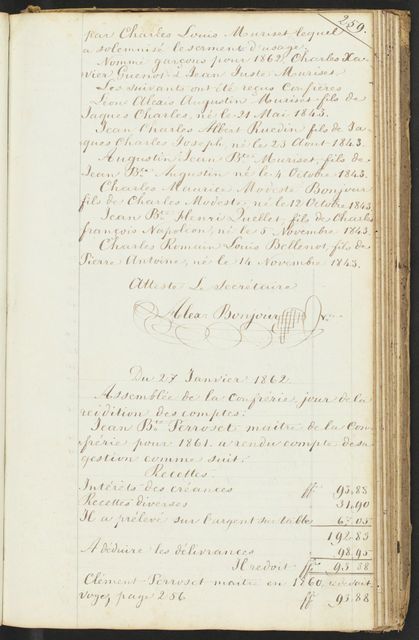 259.
par Charles Louis Muriset lequel
a solemnisé le serment d'usage.
Nommé garçons pour 1862, Charles Xa-
vier Guenot & Jean Juste Muriset.
Les suivants ont été reçus Confrères
Léon Alexis Augustin Muriset fils de
Jaques Charles, né le 21 Mai 1843.
Jean Charles Albert Ruedin fils de Ja-
ques Charles Joseph, né le 23 Aout 1843.
Augustin Jean Bte Muriset, fils de
Jean Bte Augustin né le 4 Octobre 1843.
Charles Maurice Modeste Bonjour
fils de Charles Modeste, né le 12 Octobre 1843
Jean Bt Henri Quellet, fils de Charles
françois Napoléon, né le 5 Novembre 1843.
Charles Romain Louis Bellenot, fils de
Pierre Antoine, né le 14 Novembre 1843.
Atteste Le secrétaire
Alexr Bonjour
Du 27 Janvier 1862
Assemblée de la Confrérie, jour de la
reddition des comptes:
Jean Bte Perroset maitre de la Con-
frérie pour 1861. a rendu compte de sa
gestion comme suit:
Recettes.
Intérêts des créances ff 93,88
Recettes diverses 31,90
Il a prélevé sur l'argent sur tables 67,05
192,83
A déduire les délivrances 98,95
Il redoit ff 93,88
Clément Perroset maitre en 1860, redoit
voyez page 256 ff 93.88